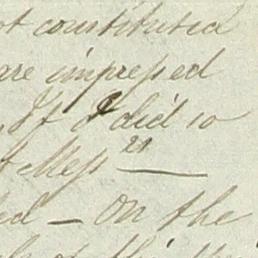 ot constituted
are impressed
If I did so
t Mess rs —
ed — On the